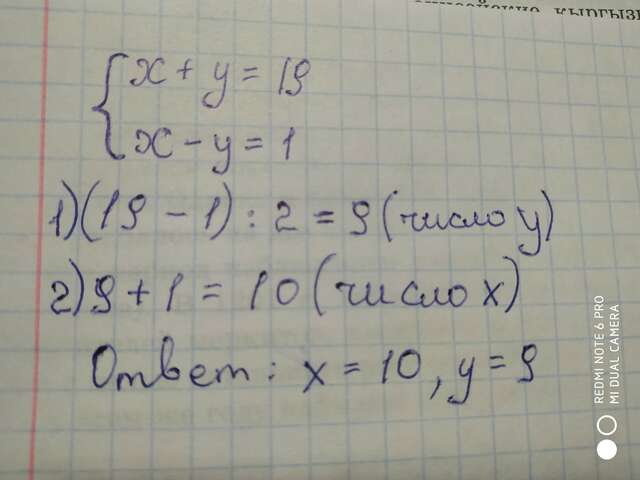 кыргыз
x + y = 19
x - y = 1
1) (19 - 1) : 2 = 9 (число y)
2) 9 + 1 = 10 (число x)
Ответ: x = 10, y = 9
REDMI NOTE 6 PRO
MI DUAL CAMERA